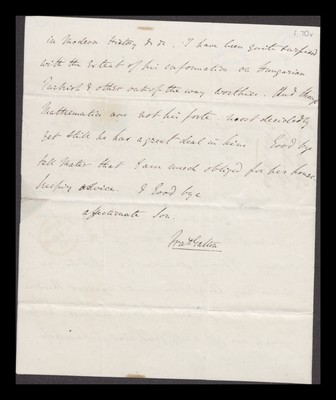 f. 70v
in Modern history &c &c. I have been quite surprised
with the extent of his information on Hungarian
Turkish & other out of the way worthies. And though
Mathematics are not his forte most decidedly
yet still he has a great deal in him Good bye
tell Mater that I am much obliged for her house
keeping advice. & Good bye
affectionate Son.
Fras Galton